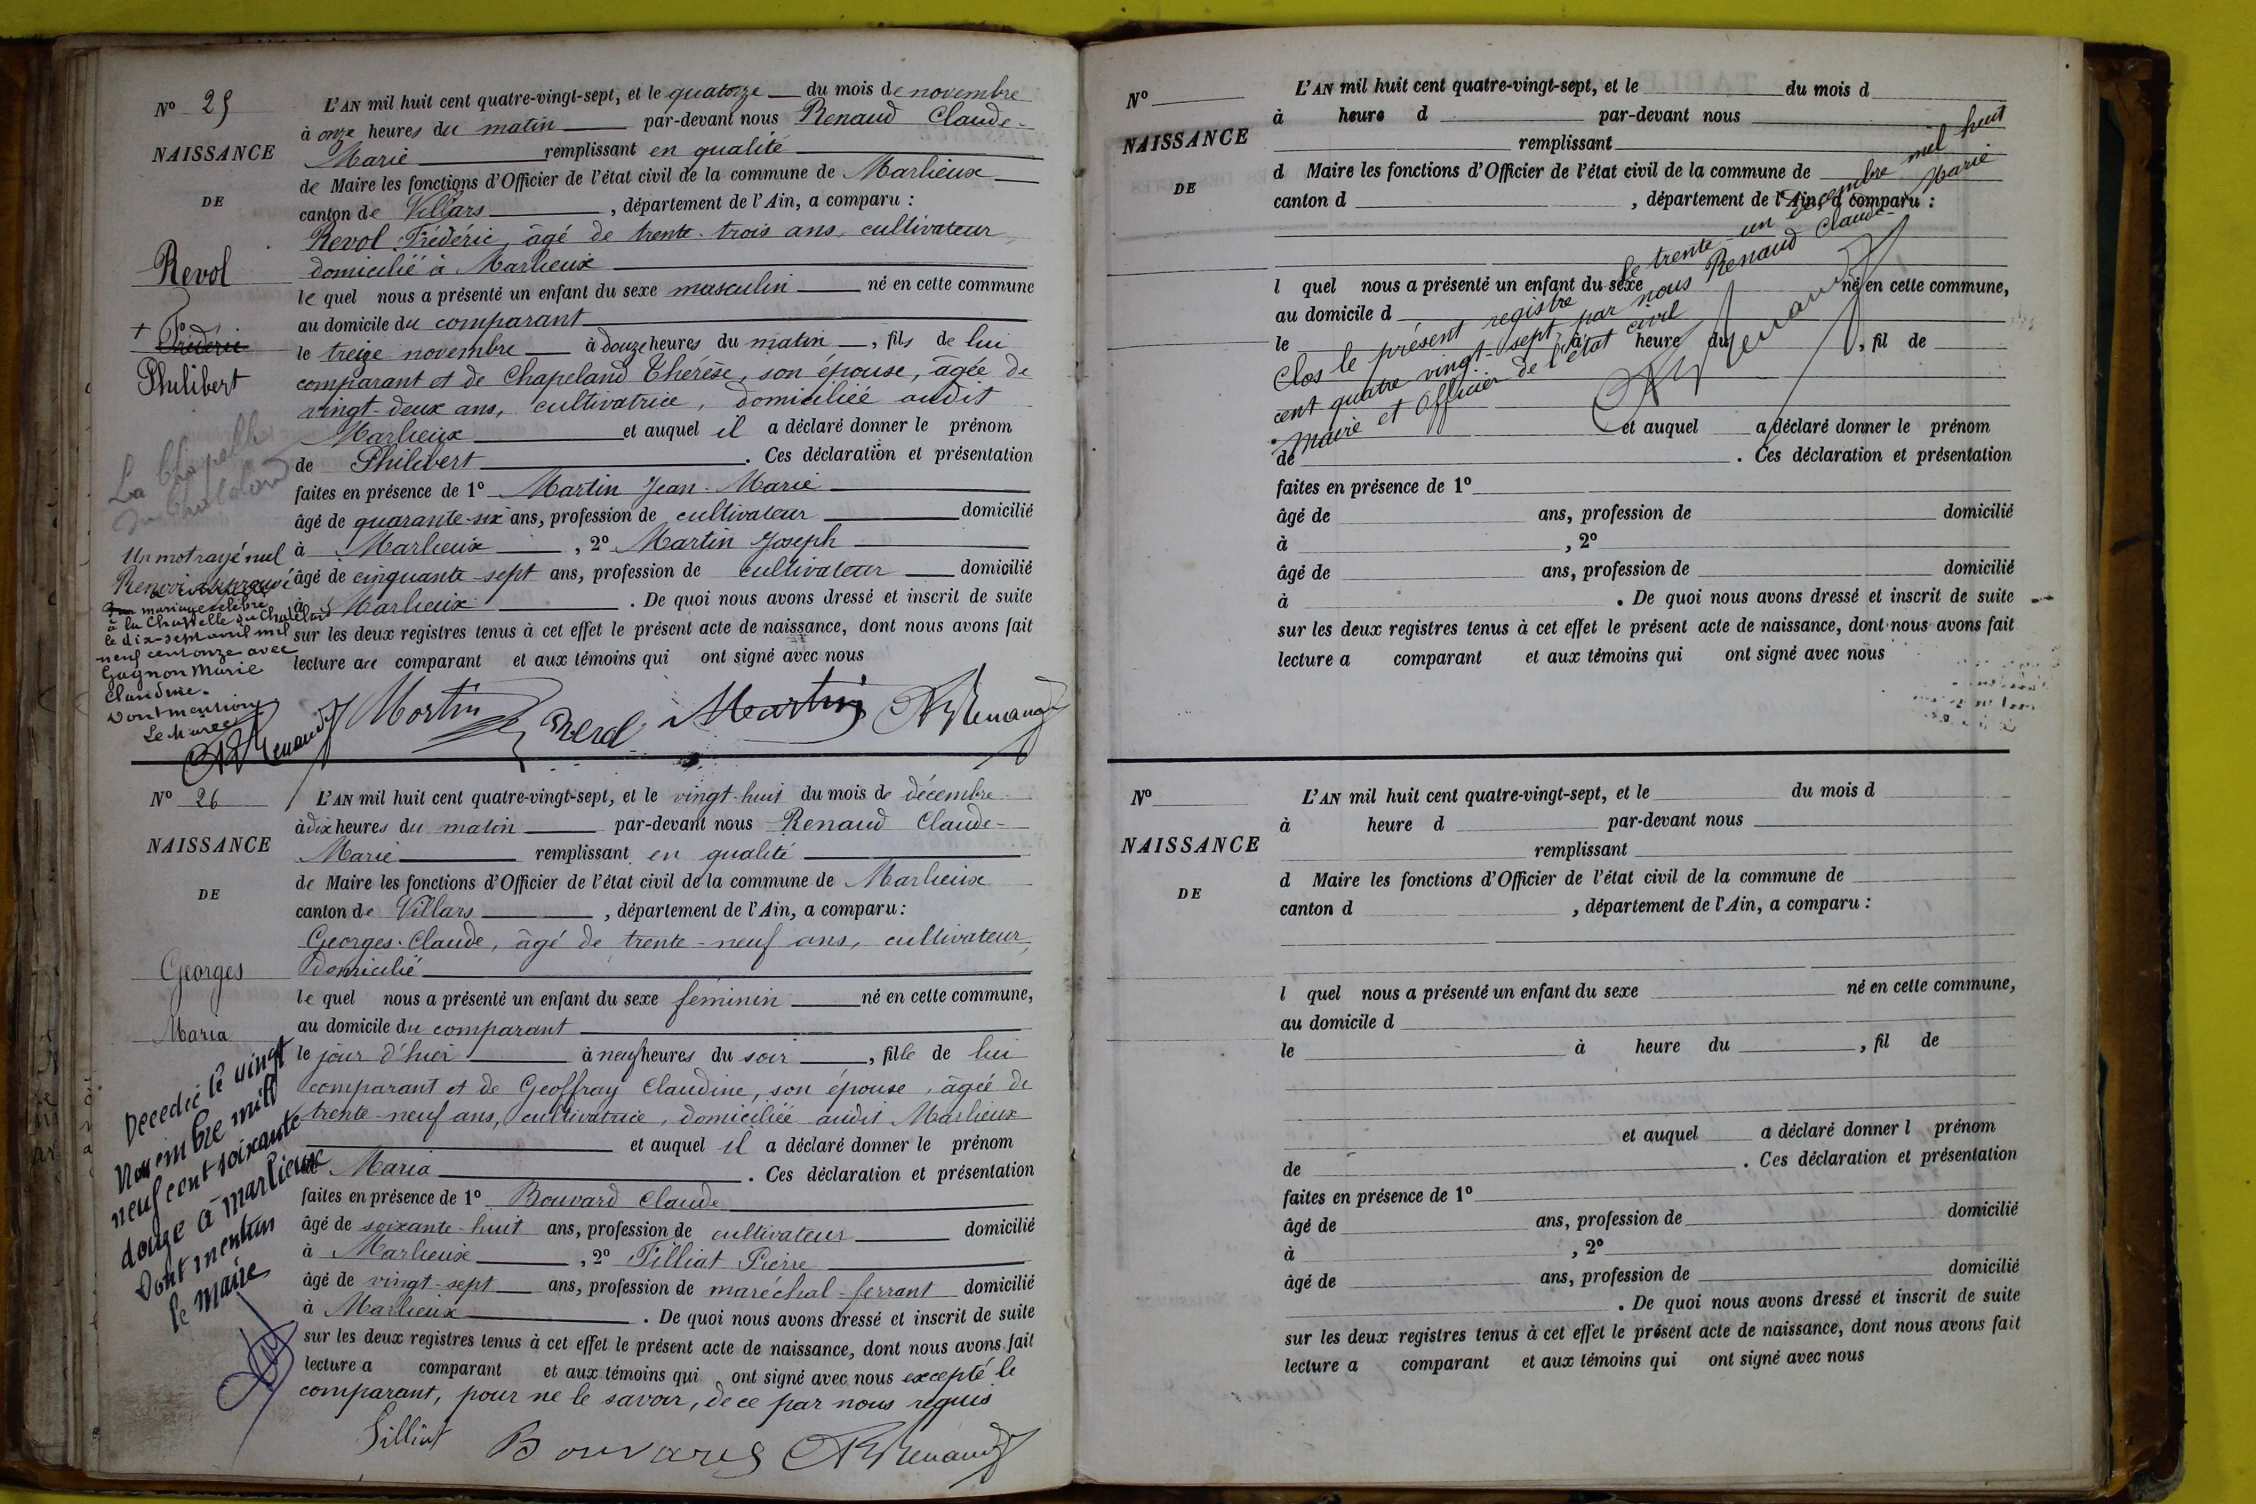 Nº 25
NAISSANCE
DE
Revol
+ Frédéric
Philibert
La Chapelle
du Chatelard
Un mot rayé nul
Renvoi approuvé
mariage célébré
à la Chapelle du Chatelard
le dix-sept avril mil
neuf cent onze avec
Gagnon Marie
Claudine.
Dont mention
Le Maire
L'AN mil huit cent quatre-vingt-sept, et le quatorze du mois de novembre
à onze heures du matin par-devant nous Renaud Claude-
Marie remplissant en qualité
de Maire les fonctions d'Officier de l'état civil de la commune de Marlieux
canton de Villars, département de l'Ain, a comparu :
Revol Frédéric, âgé de trente-trois ans, cultivateur,
domicilié à Marlieux
le quel nous a présenté un enfant du sexe masculin né en cette commune
au domicile du comparant
le treize novembre à douze heures du matin, fils de lui
comparant et de Chapeland Thérèse, son épouse, âgée de
vingt-deux ans, cultivatrice, domiciliée audit
Marlieux et auquel il a déclaré donner le prénom
de Philibert. Ces déclaration et présentation
faites en présence de 1º Martin Jean-Marie
âgé de quarante-six ans, profession de cultivateur domicilié
à Marlieux, 2º Martin Joseph
âgé de cinquante-sept ans, profession de cultivateur domicilié
à Marlieux. De quoi nous avons dressé et inscrit de suite
sur les deux registres tenus à cet effet le présent acte de naissance, dont nous avons fait
lecture au comparant et aux témoins qui ont signé avec nous
Martin Revol Martin Renaud
Nº 26
NAISSANCE
DE
Georges
Maria
Décédée le vingt
Novembre mill
neuf cent soixante
douze à Marlieux
Dont mention
le Maire
L'AN mil huit cent quatre-vingt-sept, et le vingt-huit du mois de décembre
à dix heures du matin par-devant nous Renaud Claude-
Marie remplissant en qualité
de Maire les fonctions d'Officier de l'état civil de la commune de Marlieux
canton de Villars, département de l'Ain, a comparu :
Georges Claude, âgé de trente-neuf ans, cultivateur,
domicilié
le quel nous a présenté un enfant du sexe féminin né en cette commune,
au domicile du comparant
le jour d'hier à neuf heures du soir, fille de lui
comparant et de Geoffray Claudine, son épouse, âgée de
trente-neuf ans, cultivatrice, domiciliée audit Marlieux
et auquel il a déclaré donner le prénom
de Maria. Ces déclaration et présentation
faites en présence de 1º Bouvard Claude
âgé de soixante-huit ans, profession de cultivateur domicilié
à Marlieux, 2º Filliat Pierre
âgé de vingt-sept ans, profession de maréchal-ferrant domicilié
à Marlieux. De quoi nous avons dressé et inscrit de suite
sur les deux registres tenus à cet effet le présent acte de naissance, dont nous avons fait
lecture a comparant et aux témoins qui ont signé avec nous excepté le
comparant, pour ne le savoir, de ce par nous requis
Filliat Bouvard Renaud
Nº
NAISSANCE
DE
L'AN mil huit cent quatre-vingt-sept, et le du mois d
à heure d par-devant nous
remplissant
d Maire les fonctions d'Officier de l'état civil de la commune de
canton d , département de l'Ain, a comparu :
l quel nous a présenté un enfant du sexe né en cette commune,
au domicile d
le à heure du , fil de
et auquel a déclaré donner le prénom
de . Ces déclaration et présentation
faites en présence de 1º
âgé de ans, profession de domicilié
à , 2º
âgé de ans, profession de domicilié
à . De quoi nous avons dressé et inscrit de suite
sur les deux registres tenus à cet effet le présent acte de naissance, dont nous avons fait
lecture a comparant et aux témoins qui ont signé avec nous
Clos le présent registre le trente-un décembre mil huit
cent quatre vingt-sept par nous Renaud Claude-Marie
Maire et Officier de l'état civil
Renaud
Nº
NAISSANCE
DE
L'AN mil huit cent quatre-vingt-sept, et le du mois d
à heure d par-devant nous
remplissant
d Maire les fonctions d'Officier de l'état civil de la commune de
canton d , département de l'Ain, a comparu :
l quel nous a présenté un enfant du sexe né en cette commune,
au domicile d
le à heure du , fil de
et auquel a déclaré donner l prénom
de . Ces déclaration et présentation
faites en présence de 1º
âgé de ans, profession de domicilié
à , 2º
âgé de ans, profession de domicilié
. De quoi nous avons dressé et inscrit de suite
sur les deux registres tenus à cet effet le présent acte de naissance, dont nous avons fait
lecture a comparant et aux témoins qui ont signé avec nous